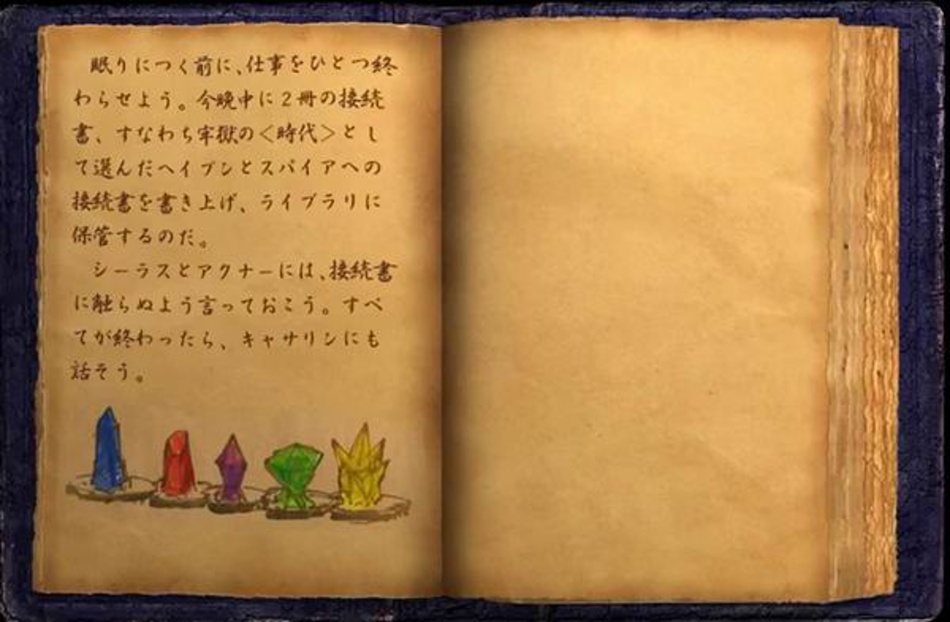 眠りにつく前に、仕事をひとつ終
わらせよう。今晩中に２冊の接続
書、すなわち牢獄の＜時代＞とし
て選んだヘイブンとスパイアへの
接続書を書き上げ、ライブラリに
保管するのだ。
シーラスとアクナーには、接続書
に触らぬよう言っておこう。すべ
てが終わったら、キャサリンにも
話そう。